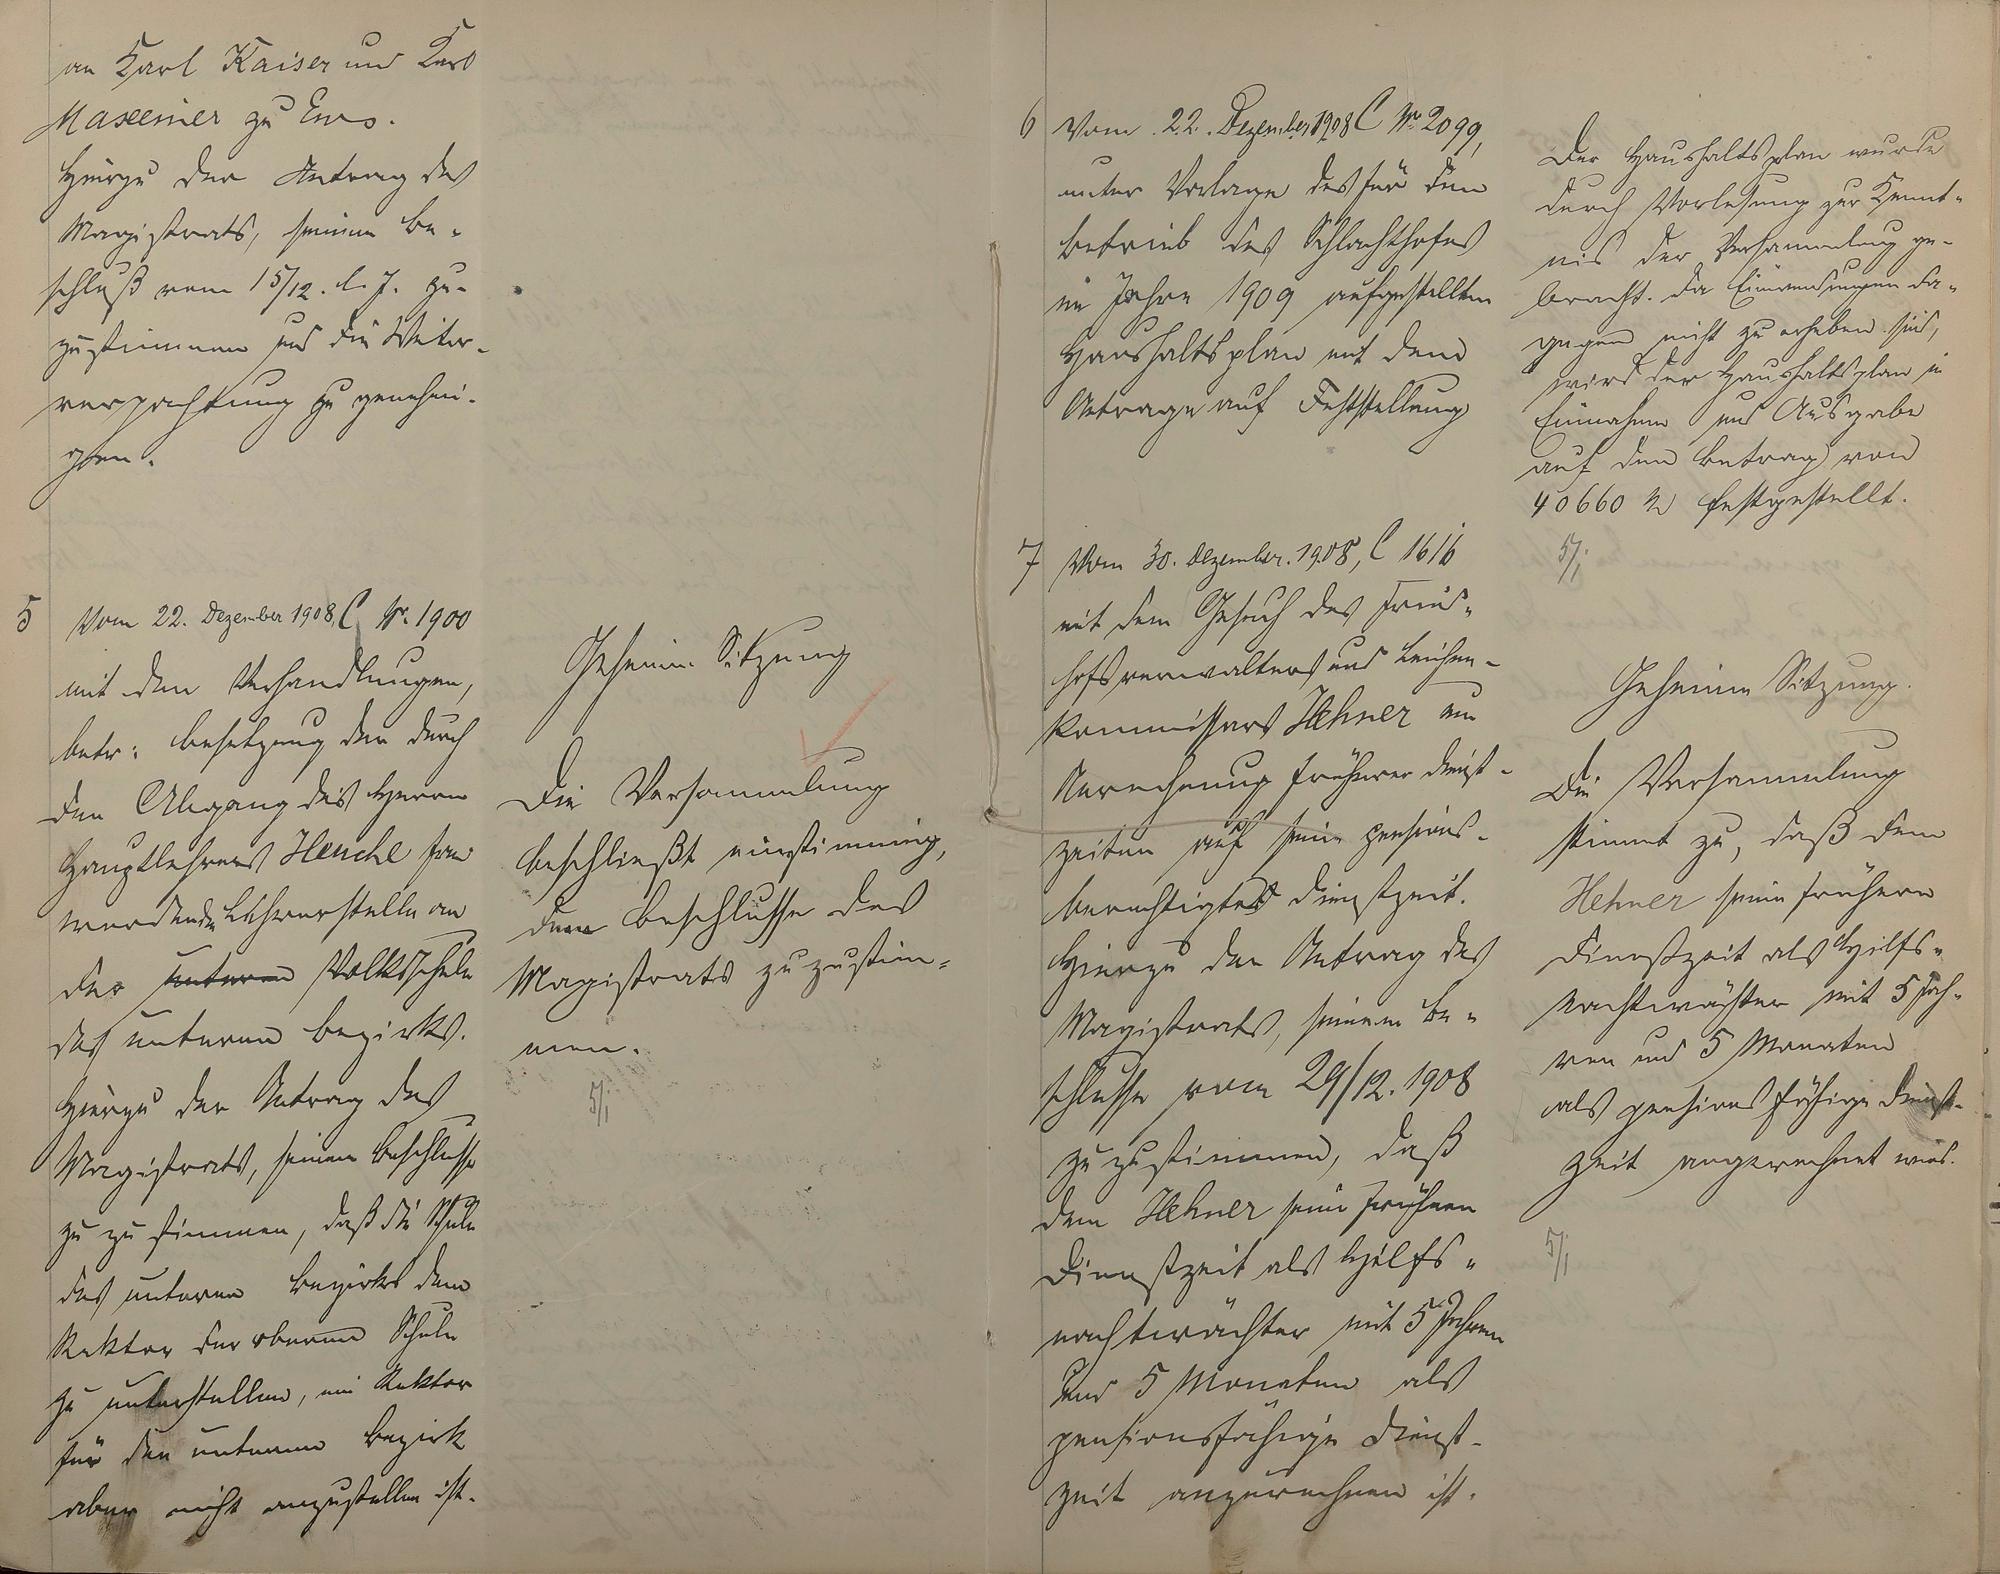 an Karl Kaiser und Karl
Maxeiner zu Ems.
Hierzu der Antrag des
Magistrats, seinem Be-
schluß vom 15/12. l. J. zu-
zustimmen und die Weiter-
verpachtung zu genehmi-
gen.
5 Vom 22. Dezember 1908, C Nr. 1900
mit den Verhandlungen,
betr: Besetzung der durch
den Abgang des Herrn
Hauptlehrers Henche frei
werdenden Lehrerstelle an
der unteren Volksschule
des unteren Bezirks.
Hierzu der Antrag des
Magistrats, seinem Beschlusse
zu zu stimmen, daß die Schule
des unteren Bezirks dem
Rektor der oberen Schule
zu unterstellen, ein Rektor
für den unteren Bezirk
aber nicht anzustellen ist.
Geheime Sitzung
Die Versammlung
beschließt einstimmig,
dem Beschlusse des
Magistrats zuzustim-
men.
5/1
6 Vom 22. Dezember 1908 C Nr. 2099,
unter Vorlage des für den
Betrieb des Schlachthofes
im Jahre 1909 aufgestellten
Haushaltsplan mit dem
Antrage auf Feststellung
7 Vom 30. Dezember. 1908, C 1616
mit dem Gesuch des Fried-
hofsverwalters und Leichen-
kommissars Hehner um
Anrechnung früherer Dienst-
zeiten auf seine pensions-
berechtigte Dienstzeit.
Hierzu der Antrag des
Magistrats, seinem Be-
schlusse vom 29/12. 1908
zuzustimmen, daß
dem Hehner seine frühere
Dienstzeit als Hilfs-
nachtwächter mit 5 Jahren
und 5 Monaten als
pensionsfähige Dienst-
zeit anzurechnen ist.
Der Haushaltsplan wurde
durch Vorlesung zur Kennt-
nis der Versammlung ge-
bracht. Da Einwendungen da-
gegen nicht zu erheben sind,
wird der Haushaltsplan in
Einnahme und Ausgabe
auf den Betrag von
40660 M festgestellt.
5/1
Geheime Sitzung.
Die Versammlung
stimmt zu, daß dem
Hehner seine frühere
Dienstzeit als Hilfs-
nachtwächter mit 5 Jah-
ren und 5 Monaten
als pensionsfähige Dienst-
zeit angerechnet wird.
5/1